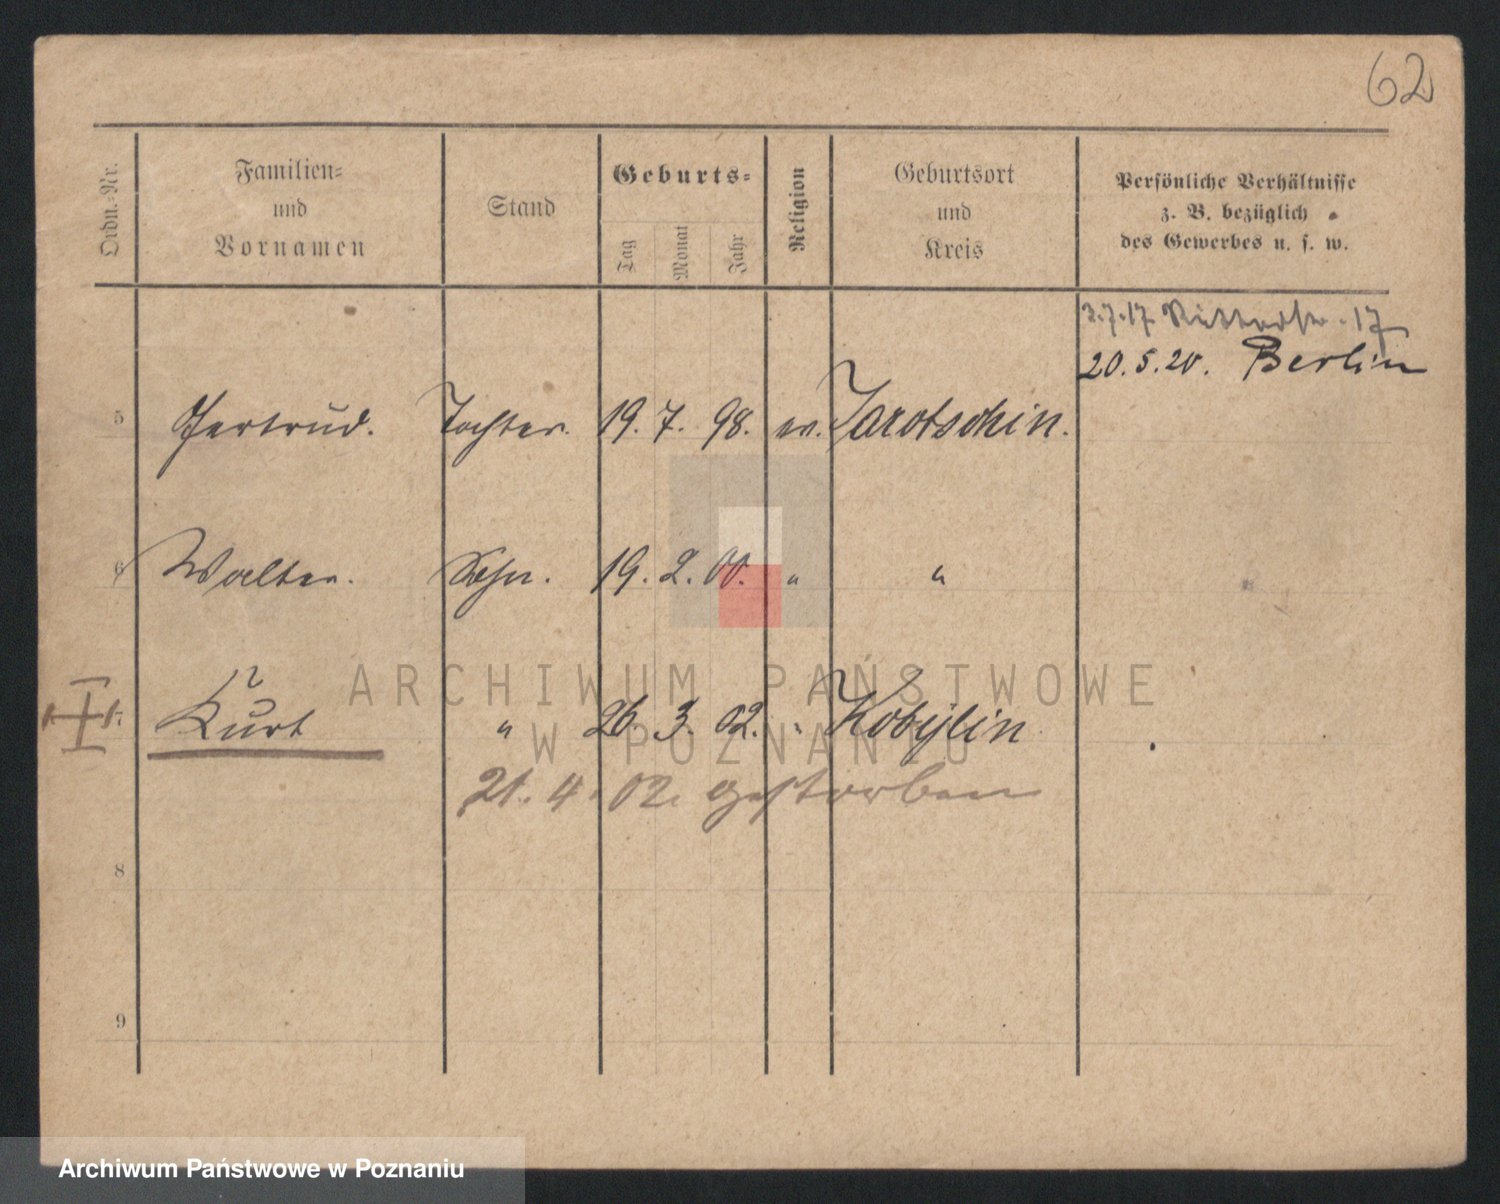 62
Ordn.-Nr.
Familien-
und
Vornamen
Stand
Geburts-
Tag
Monat
Jahr
Religion
Geburtsort
und
Kreis
Persönliche Verhältnisse
z. B. bezüglich
des Gewerbes u. s. w.
3.7.17. Ritterstr. 17
20.5.20. Berlin
5 Gertrud. Tochter. 19. 7. 98. ev. Jarotschin.
6 Walter. Sohn. 19. 2. 00. " "
Kurt " 26. 3. 02. " Kobylin
21. 4. 02. gestorben
8
9
ARCHIWUM PAŃSTWOWE
W POZNANIU
Archiwum Państwowe w Poznaniu